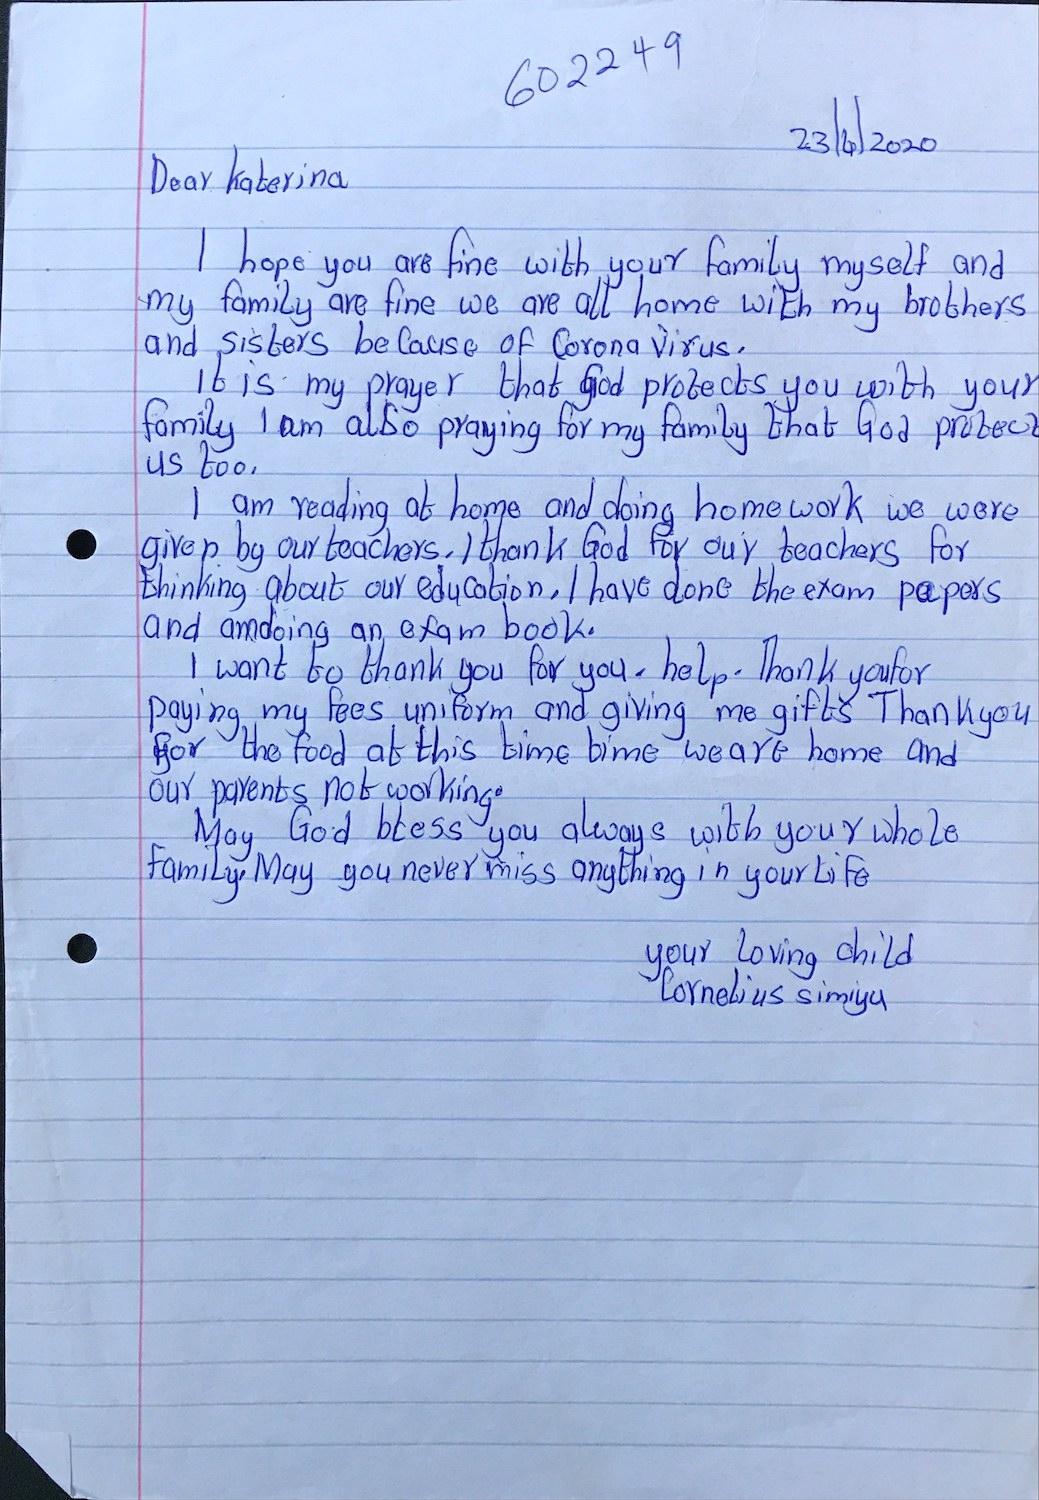 602249
23/4/2020
Dear Katerina
I hope you are fine with your family myself and
my family are fine we are all home with my brothers
and sisters because of Corona Virus.
It is my prayer that God protects you with your
family I am also praying for my family that God protect
us too.
I am reading at home and doing homework we were
given by our teachers. I thank God for our teachers for
thinking about our education. I have done the exam papers
and am doing an exam book.
I want to thank you for you. help. Thank you for
paying my fees uniform and giving me gifts Thank you
for the food at this time time we are home and
our parents not working.
May God bless you always with your whole
family. May you never miss anything in your Life
your loving child
Cornelius simiyu